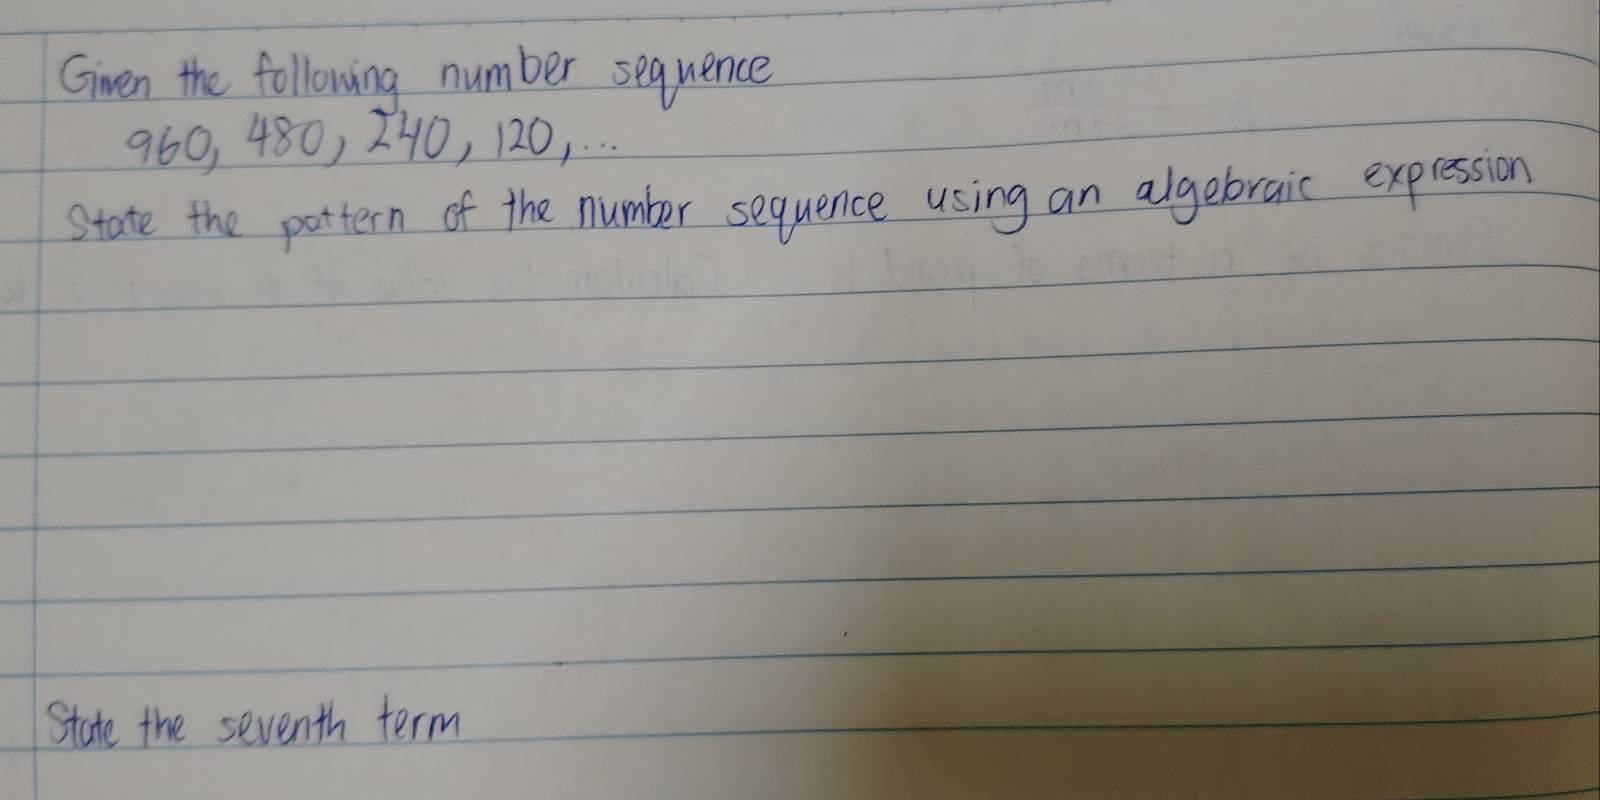 Given the following number sequence
960, 480, 240, 120, ...
State the pattern of the number sequence using an algebraic expression
State the seventh term